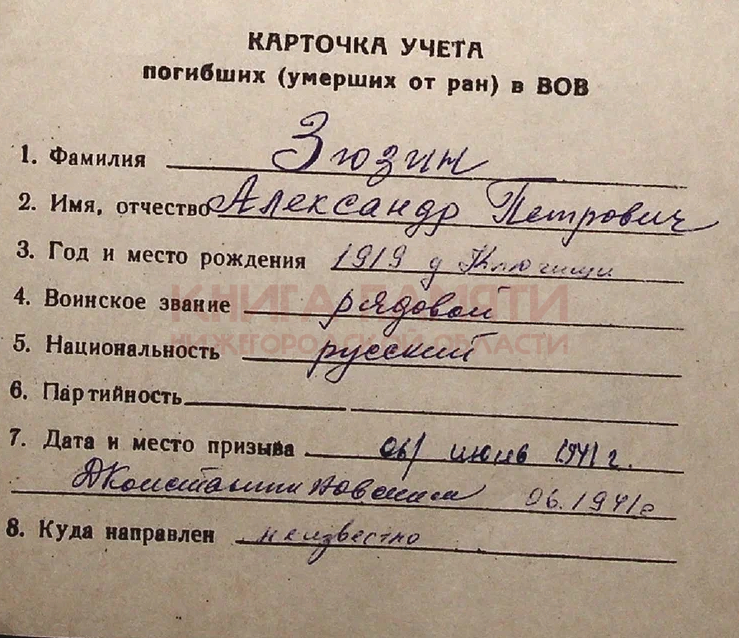 КАРТОЧКА УЧЕТА
погибших (умерших от ран) в ВОВ
1. Фамилия Зюзин
2. Имя, отчество Александр Петрович
3. Год и место рождения 1919 д Ключищи
4. Воинское звание рядовой
КНИГА ПАМЯТИ
5. Национальность русский
НИЖЕГОРОДСКОЙ ОБЛАСТИ
6. Партийность
7. Дата и место призыва 06/ июнь 1941 г.
06.1941г
8. Куда направлен неизвестно